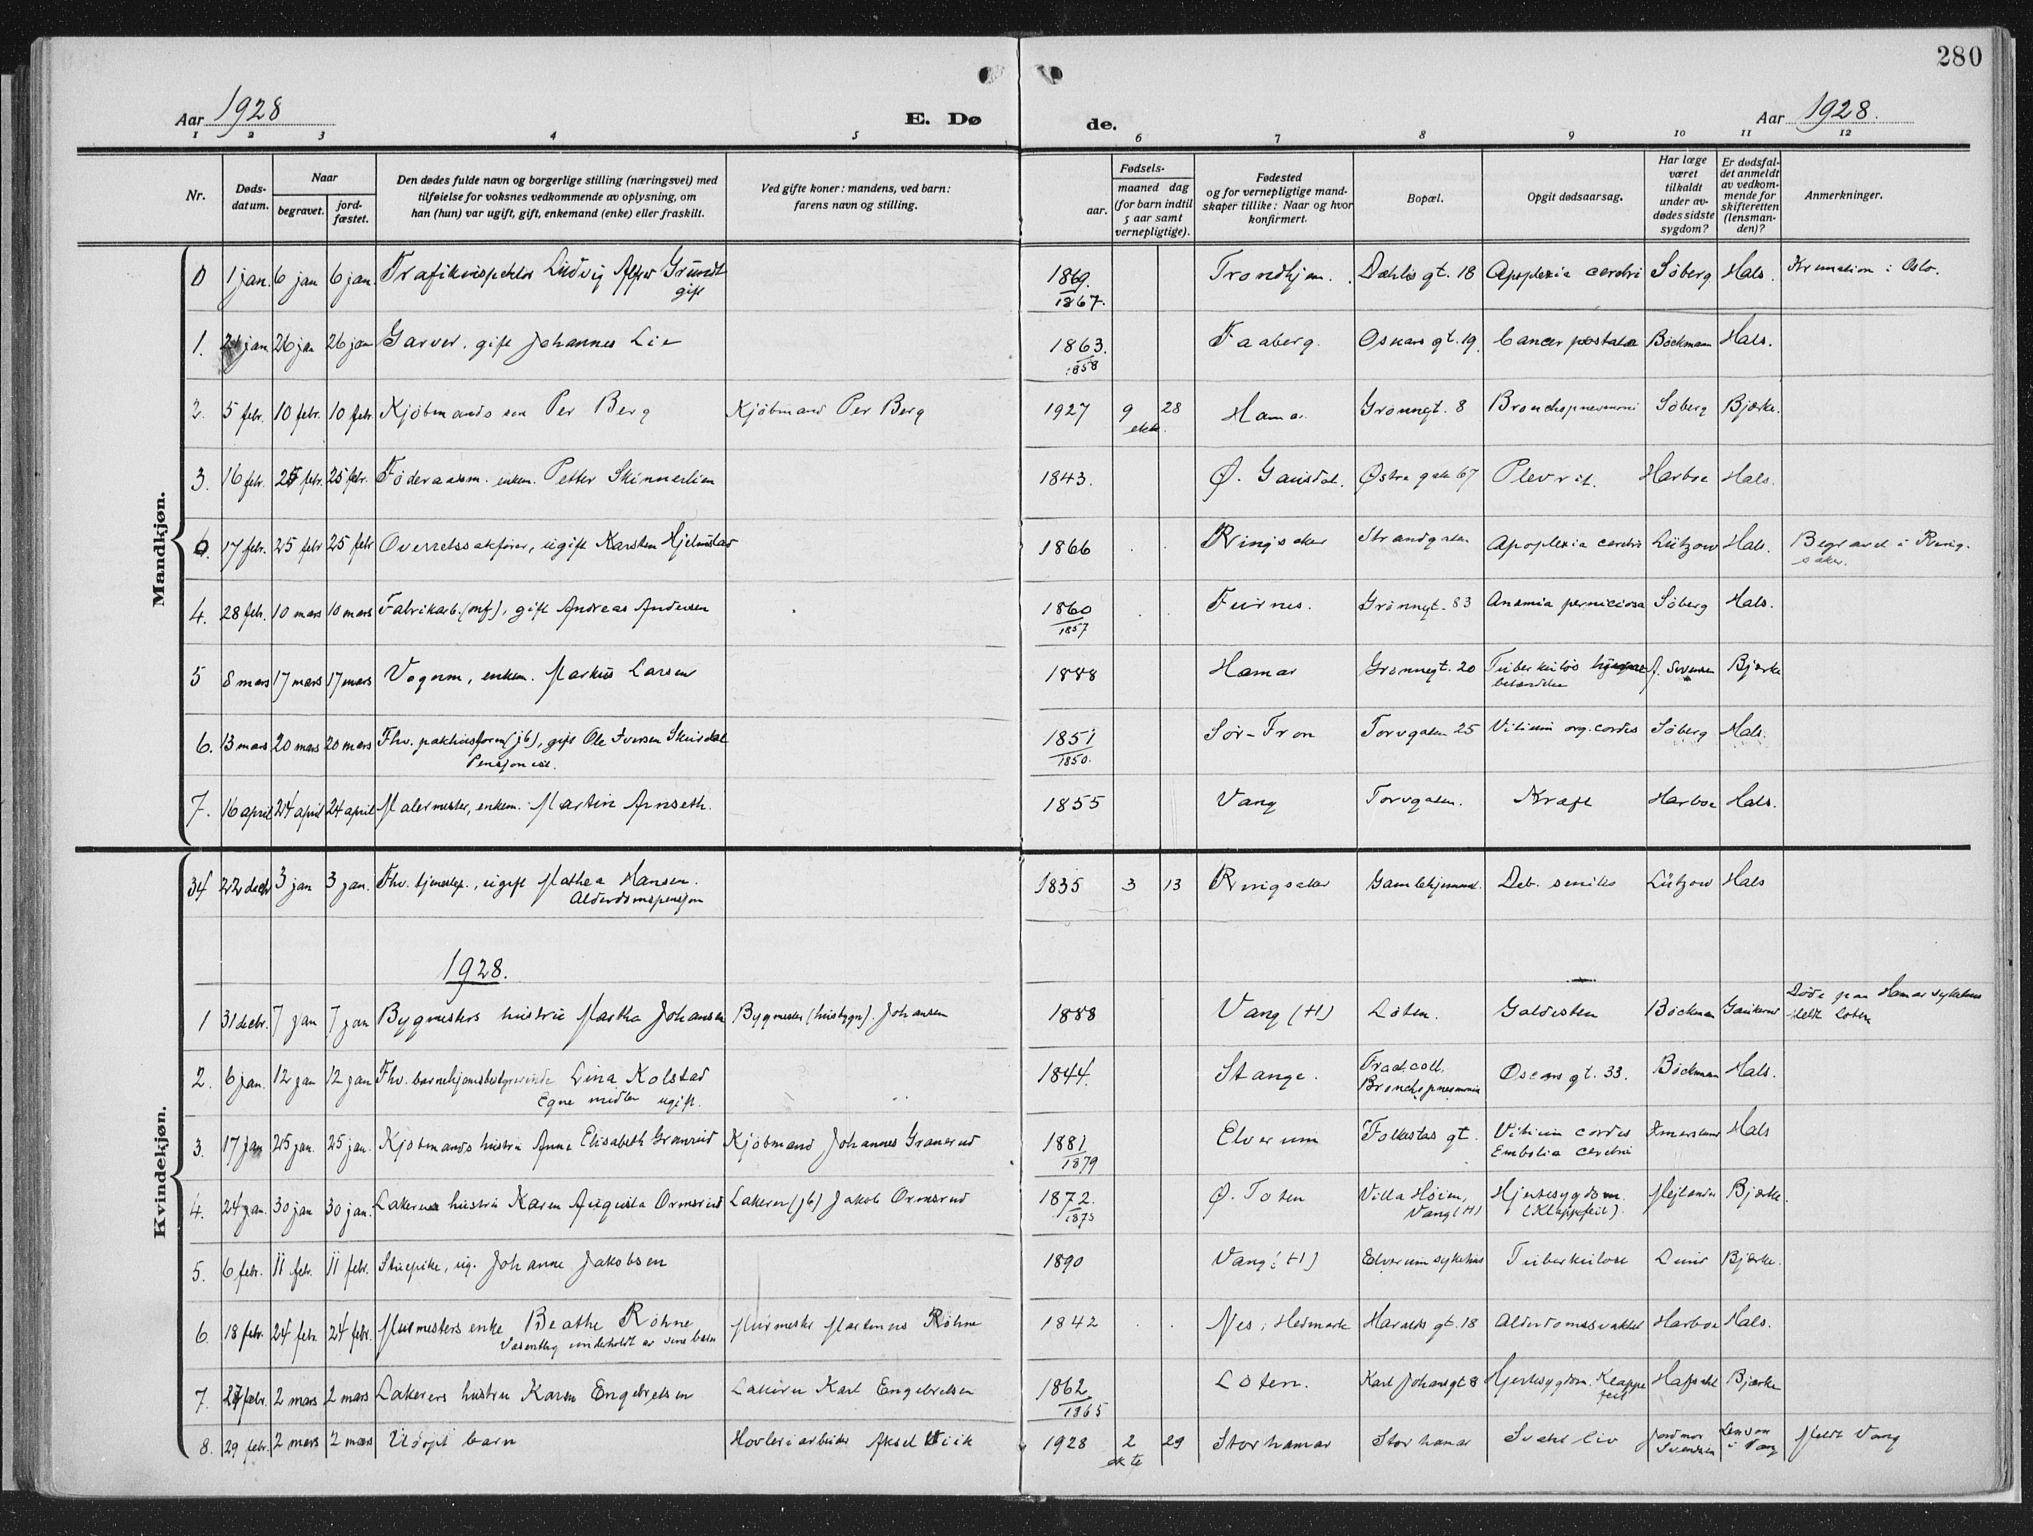 280
Aar 1928
E. Dø
de.
Aar 1928.
1 2 3 4 5 6 7 8 9 10 11 12
Nr.
Døds-
datum.
Naar
begravet.
jord-
fæstet.
Den dødes fulde navn og borgerlige stilling (næringsvei) med
tilføielse for voksnes vedkommende av oplysning, om
han (hun) var ugift, gift, enkemand (enke) eller fraskilt.
Ved gifte koner: mandens, ved barn:
farens navn og stilling.
Fødsels-
aar.
maaned dag
(for barn indtil
5 aar samt
vernepligtige).
Fødested
og for vernepligtige mand-
skaper tillike: Naar og hvor
konfirmert.
Bopæl.
Opgit dødsaarsag.
Har læge
været
tilkaldt
under av-
dødes sidste
sygdom?
Er dødsfal-
det anmeldt
av vedkom-
mende for
skifteretten
(lensman-
den)?
Anmerkninger.
Mandkjøn.
0 1 jan. 6 jan 6 jan. Trafikinspektør Ludvig Alfred Grundt 1869. Trondhjem. Dæhlis gt. 18 Apoplexia cerebri Søberg Hals. Kremation i Oslo.
gift 1867.
1. jan. 26 jan 26 jan Garver, gift Johannes Lie 1863. Faaberg. Oscars gt. 19. Cancer Bøckmann Hals.
1858
2. 5 febr. 10 febr. 10 febr. Kjøbmands søn Per Berg Kjøbmand Per Berg 1927 9 28 Hamar Grønnegt. 8 Bronchopneumoni Søberg Bjærke.
ekte.
3. 16 febr. 25 febr. 25 febr. Føderaadsm. enkem. Petter Skinnerlien 1843. Ø. Gausdal. Østre gate 67 Plevrit. Harboe Hals.
17 febr. 25 febr 25 febr Overretssakfører, ugift Karsten Hjelmstad 1866 Ringsaker Strandgaten Apoplexia cerebri Lützow Hals. Begravet i Ring-
saker.
4. 28 febr. 10 mars 10 mars Fabrikarb. (mf), gift Andreas Andersen 1860 Furnes. Grønnegt. 83 Anæmia perniciosa Søberg Hals.
1857
5 8 mars 17 mars 17 mars Vognm, enkem. Markus Larsen 1888 Hamar Grønnegt. 20 Tuberkuløs Bjærke
6. 13 mars 20 mars 20 mars Fhv. pakhusform (jb), gift Ole Iversen Skurdal 1851 Sør-Fron Torvgaten 25 Vitium org. cordis Søberg Hals.
Pensjonist. 1850.
7. 16 april 24 april 24 april Malermester, enkem. Martin Arnseth. 1855 Vang Torvgaten. Kræft Harboe Hals.
Kvindekjøn.
34 22 decbr 3 jan 3 jan. Fhv. tjenestep., ugift Mathea Hansen. 1835 3 13 Ringsaker Gamlehjemmet. Deb. senilis Lützow Hals
Alderdomspensjon
1928.
1 31 decbr. 7 jan 7 jan Bygmesters hustru Martha Johansen Bygmester (husbygn). Johansen 1888 Vang (H) Løten. Galdesten Bøckman Gaukerud Døde paa Hamar sykehus
Meldt Løten
2. 6 jan. 12 jan 12 jan Fhv. barnehjemsbestyrerinde Lina Kolstad 1844. Stange. Fract. coll. Oscars gt. 33. Bøckman Hals.
Egne midler ugift. Bronchopneumonia
3. 17 jan 25 jan. 25 jan. Kjøbmands hustru Anne Elisabeth Granerud Kjøbmand Johannes Granerud 1881 Elverum Folkestas gt. Vitium cordis Hals
1879 Embolia cerebri
4. 24 jan. 30 jan 30 jan. Lakerers hustru Karen Augusta Ormsrud Lakerer (jb) Jakob Ormsrud 1872. Ø. Toten Villa Høien, Hjertesygdom. Mejlænder Bjærke.
1873 Vang (H) (Klappefeil).
5. 6 febr. 11 febr. 11 febr. Stuepike, ug. Johanne Jakobsen 1890 Vang (H) Elverum sykehus Tuberkulose Lund Bjærke.
6 18 febr. 24 febr. 24 febr. Murmesters enke Beathe Røhne Murmester Martinus Røhne 1842 Nes, Hedmark Haralds gt. 18 Alderdomssvakhet Harboe Hals.
Væsentlig underholdt av sine barn
7. 27 febr. 2 mars 2 mars Lakerers hustru Karen Engebretsen Lakerer Karl Engebretsen 1862 Løten. Karl Johans gt 8 Hjertesygdom. Klappe Bjærke
1865 feil
8. 29 febr. 2 mars 2 mars Udøpt barn Høvleriarbeider Aksel Viik 1928 2 29 Storhamar Storhamar Svakt liv Jordmor Lensm Meldt Vang
ekte Svendsen i Vang